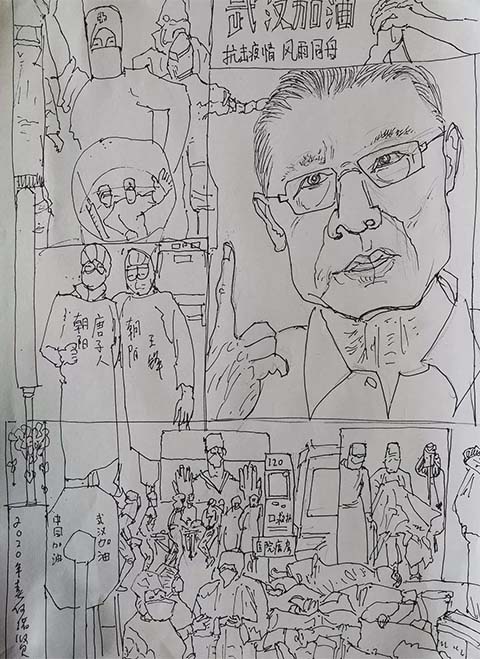 武汉加油
抗击疫情 风雨同舟
唐子人
朝阳
王锋
朝阳
120
医院病房
武汉加油
中国加油
2020年春